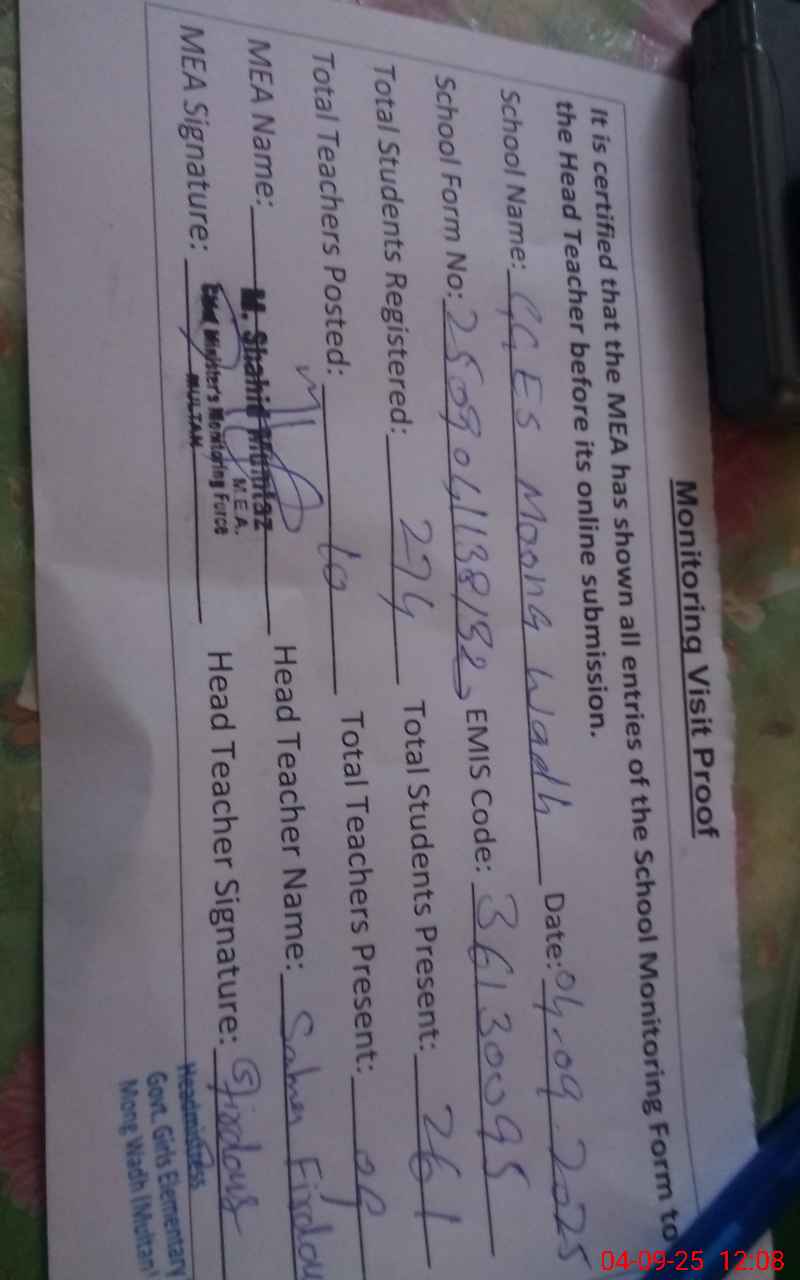 Monitoring Visit Proof
It is certified that the MEA has shown all entries of the School Monitoring Form to
the Head Teacher before its online submission.
School Name: GGES Moong Wadh Date: 04.09.2025
School Form No: EMIS Code: 36130095
Total Students Registered: 274 Total Students Present: 261
Total Teachers Posted: 10 Total Teachers Present:
MEA Name: M. Shahid Mumtaz Head Teacher Name: Firdous
M.E.A.
MEA Signature: Chief Minister's Monitoring Force Head Teacher Signature: Firdous
MULTAN
Headmistress
Govt. Girls Elementary
Mong Wadh (Multan)
04-09-25 12:08